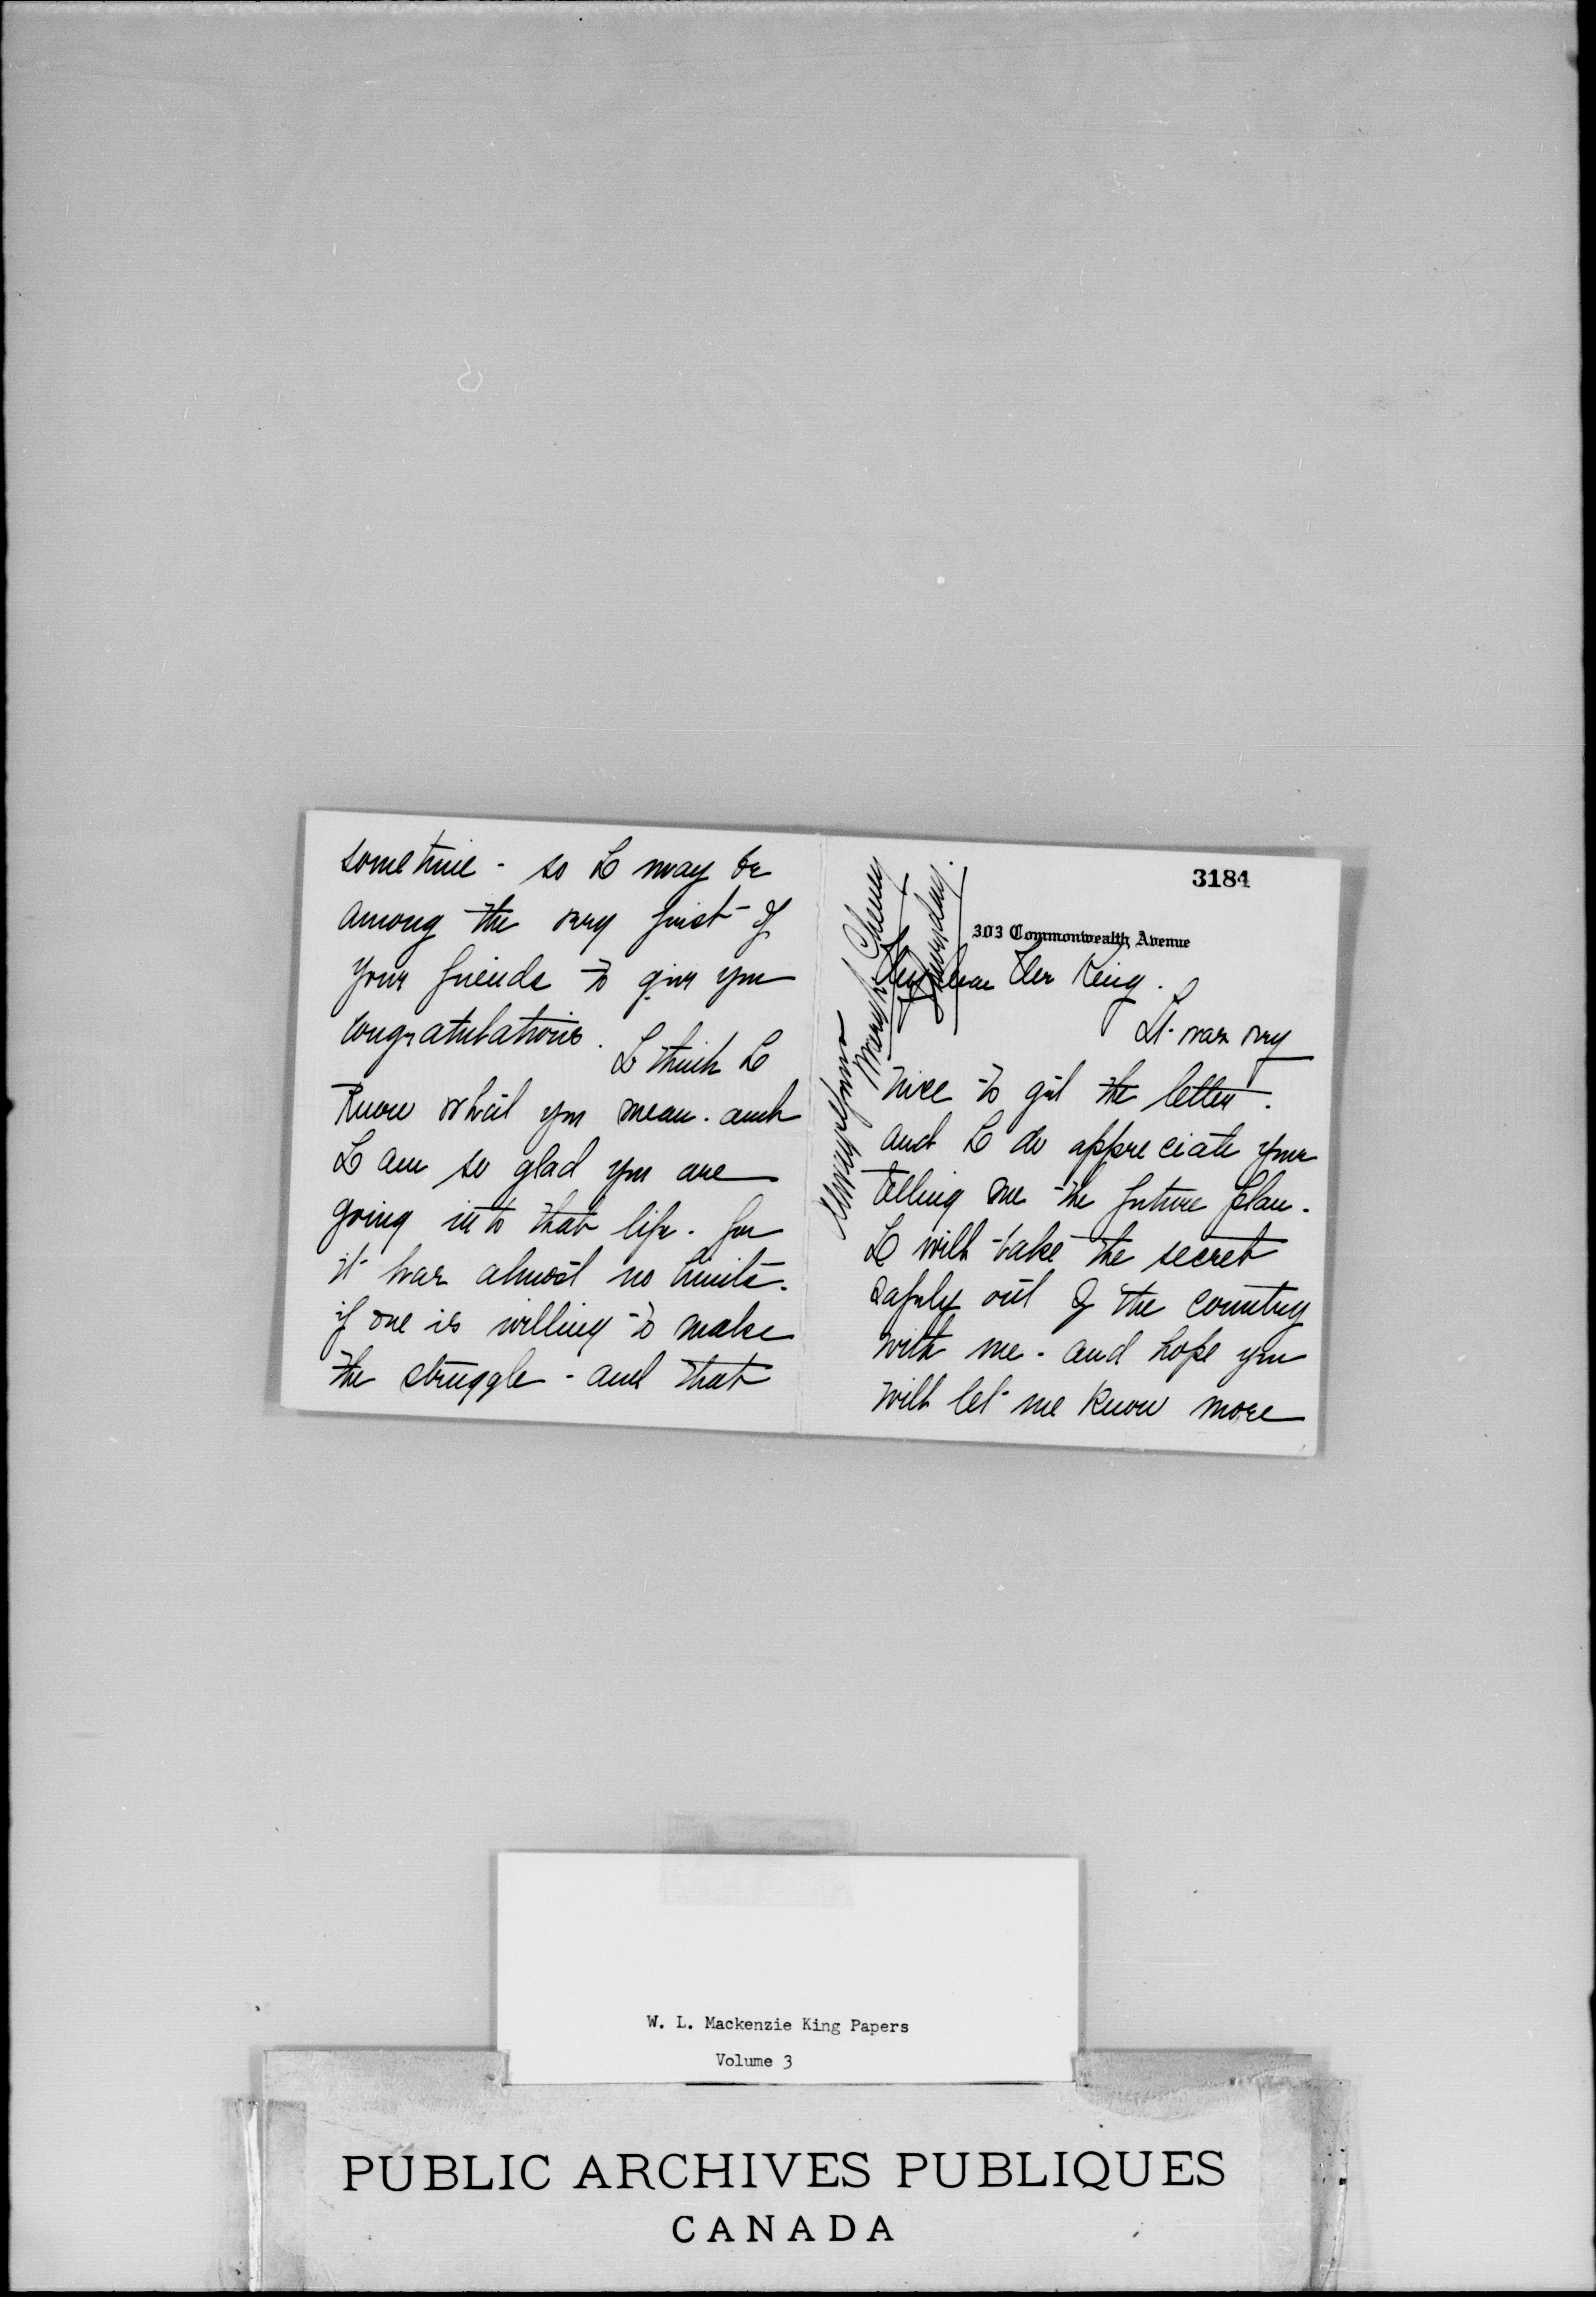 3184
303 Commonwealth Avenue
My dear Mr King.
It was very
nice to get the letter.
and I do appreciate your
telling me the future plan.
I will take the secret
safely out of the country
with me. and hope you
will let me know more
sometime - so I may be
among the very first of
your friends to give you
congratulations.
I think I
know what you mean. and
I am so glad you are
going into that life. for
it has almost no limits.
if one is willing to make
the struggle - and that
Always Yours
Mary Cheney
W. L. Mackenzie King Papers
Volume 3
PUBLIC ARCHIVES PUBLIQUES
CANADA